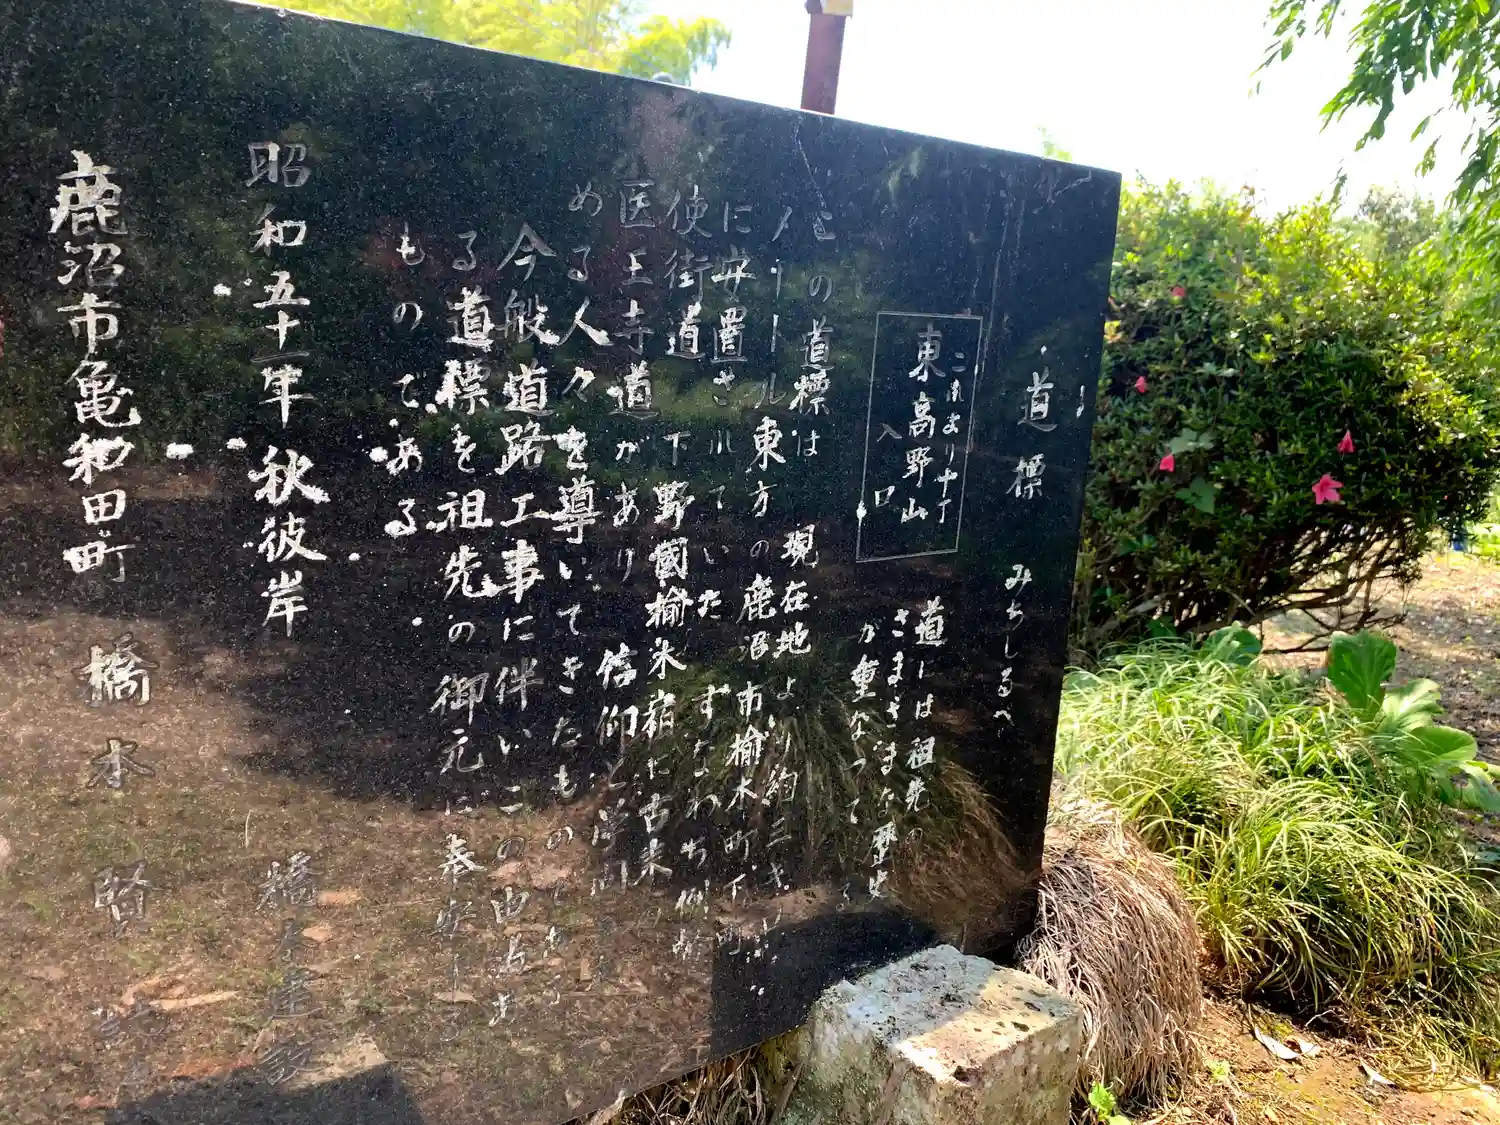 道標 みちしるべ
これより十丁
東高野山
入口
道には祖先の
さまざまな歴史
が重なって
この道標は 現在地より約三キロ
メートル東方の鹿沼市楡木町下町
に安置されていた すなわち例幣
使街道下野國楡木宿に古来
医王寺道があり 信仰と
める人々を導いてきたものである
今般道路工事に伴いこの由緒ある
る道標を祖先の御元に奉安する
ものである
昭和五十一年秋彼岸
橋本
鹿沼市亀和田町 橋本 賢